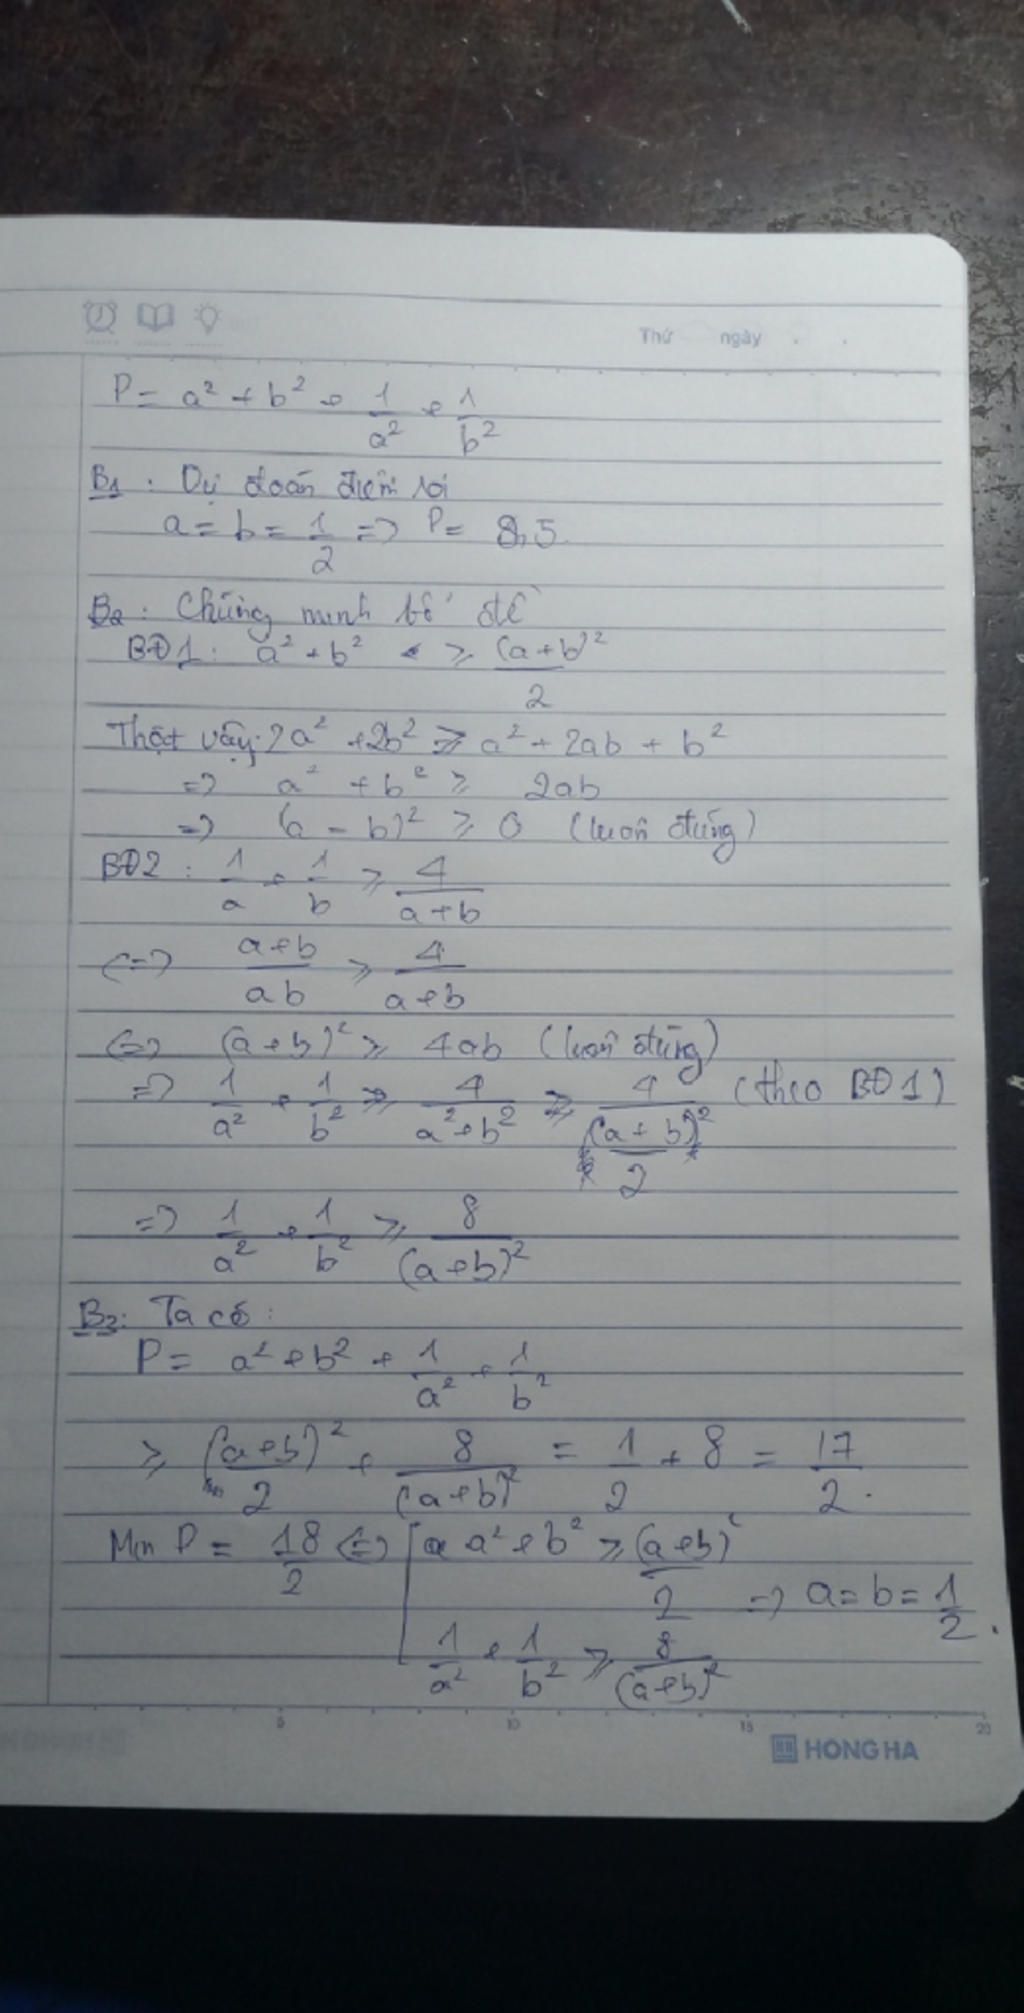 Thứ ngày
P = a² + b² + 1/a² + 1/b²
B1 : Dự đoán điểm rơi
a = b = 1/2 => P = 8,5
B2 : Chứng minh bổ đề
BĐ1 : a² + b² ≥ (a+b)²/2
Thật vậy : 2a² + 2b² ≥ a² + 2ab + b²
=> a² + b² ≥ 2ab
=> (a - b)² ≥ 0 (luôn đúng)
BĐ2 : 1/a + 1/b ≥ 4/(a+b)
<=> (a+b)/ab ≥ 4/(a+b)
<=> (a+b)² ≥ 4ab (luôn đúng)
=> 1/a² + 1/b² ≥ 4/(a²+b²) ≥ 4/((a+b)²/2) (theo BĐ1)
=> 1/a² + 1/b² ≥ 8/(a+b)²
B3 : Ta có :
P = a² + b² + 1/a² + 1/b²
≥ (a+b)²/2 + 8/(a+b)² = 1/2 + 8 = 17/2 .
Min P = 18/2 <=> [ a² + b² ≥ (a+b)²/2 => a = b = 1/2 .
1/a² + 1/b² ≥ 8/(a+b)²
5 10 15 20
HONG HA